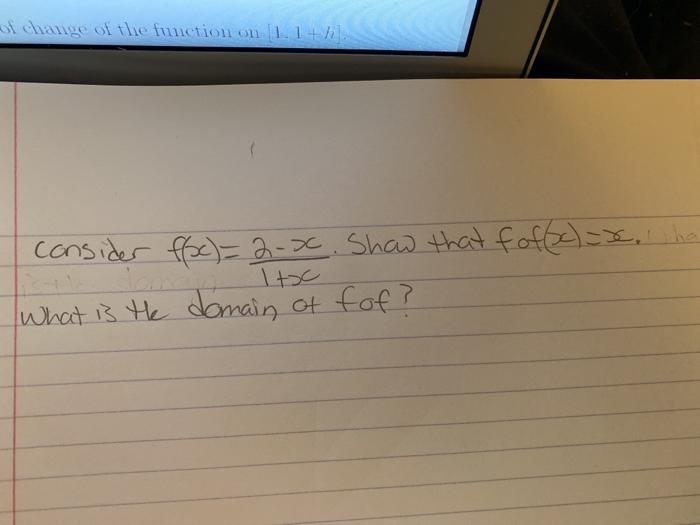 of change of the function on [1, 1+h].
consider f(x) = 2-x/1+x. Show that fof(x) = x.
What is the domain of fof?